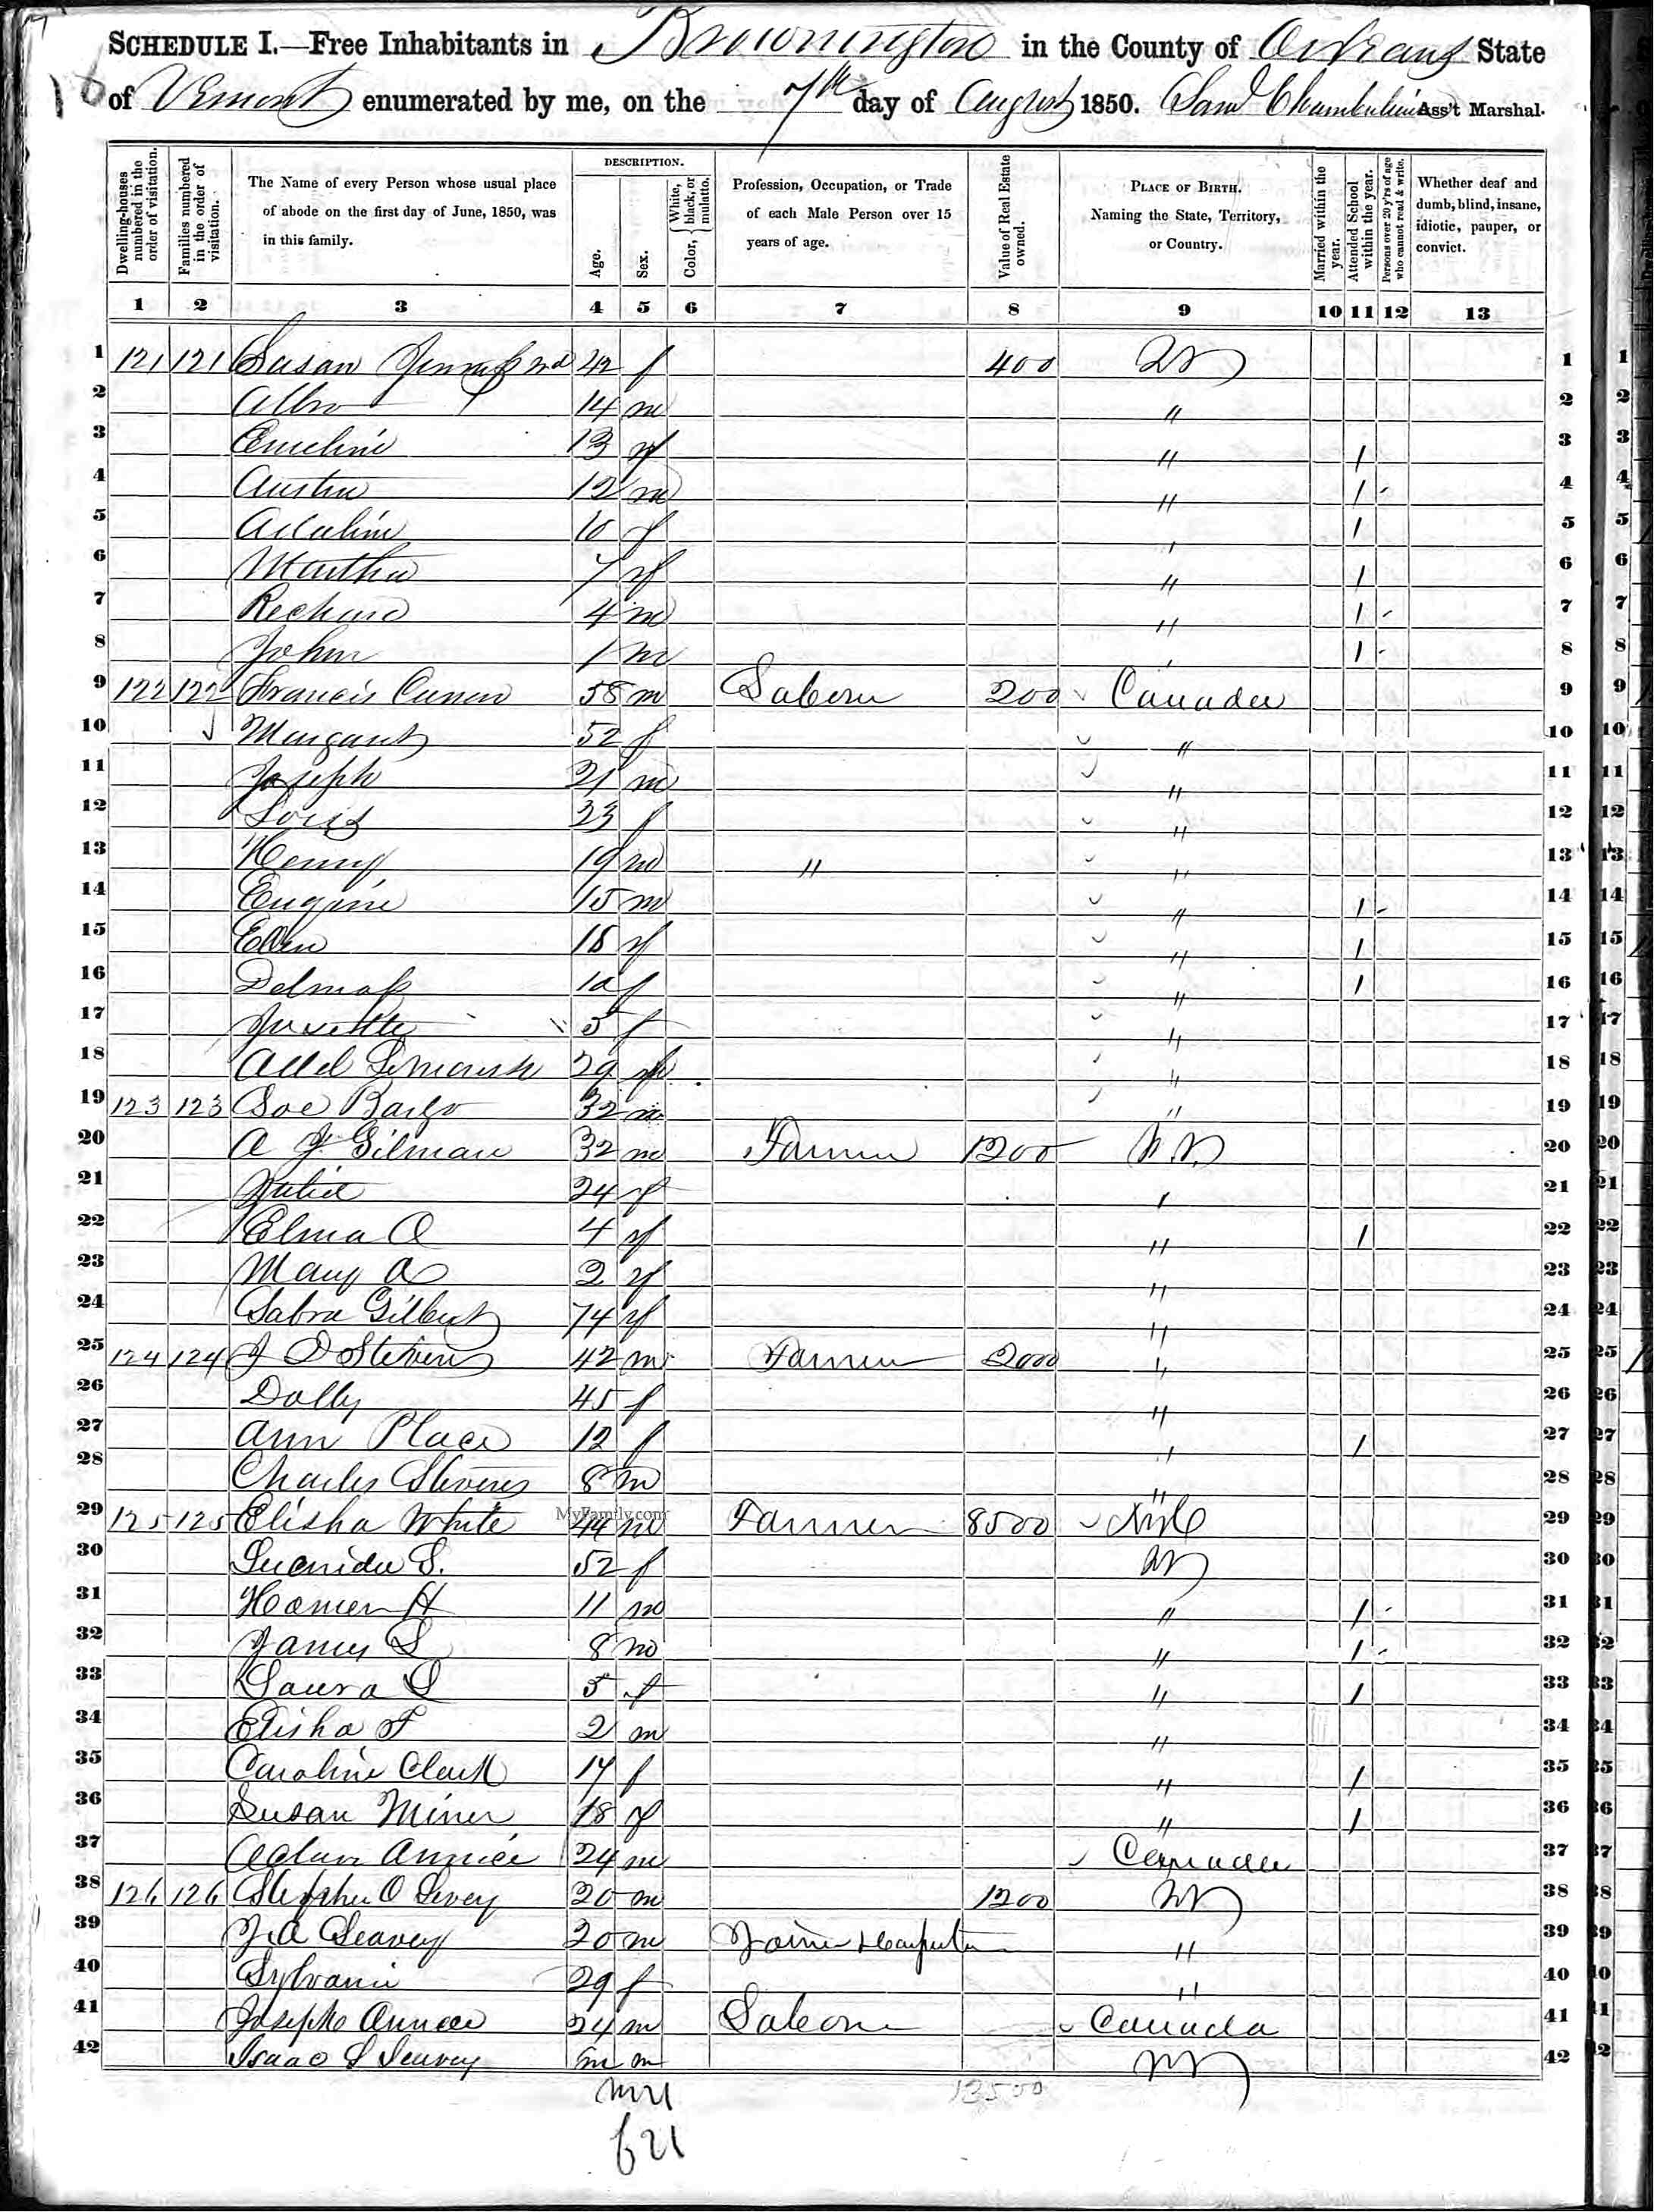 SCHEDULE I.—Free Inhabitants in Brownington in the County of Orleans State
of Vermont enumerated by me, on the 7th day of August 1850. Saml Chamberlin Ass't Marshal.
Dwelling-houses numbered in the order of visitation.
Families numbered in the order of visitation.
The Name of every Person whose usual place of abode on the first day of June, 1850, was in this family.
DESCRIPTION.
Age.
Sex.
Color, { White, black, or mulatto.
Profession, Occupation, or Trade of each Male Person over 15 years of age.
Value of Real Estate owned.
PLACE OF BIRTH. Naming the State, Territory, or Country.
Married within the year.
Attended School within the year.
Persons over 20 y'rs of age who cannot read & write.
Whether deaf and dumb, blind, insane, idiotic, pauper, or convict.
1 2 3 4 5 6 7 8 9 10 11 12 13
1 121 121 Susan 42 f 400 Vt 1
2 14 m " 2
3 Emeline 13 f " 1 3
4 Austin 12 m " 1 4
5 Adaline 10 f " 1 5
6 Martha 7 f " 1 6
7 Richard 4 m " 1 7
8 John 1 m " 1 8
9 122 122 Francis 58 m Laborer 200 Canada 9
10 Margaret 52 f " 10
11 Joseph 21 m " 11
12 23 f " 12
13 Henry 19 m " " 13
14 Eugine 15 m " 1 14
15 Ellen f " 1 15
16 10 f " 1 16
17 5 f " 17
18 29 f " 18
19 123 123 32 m " 19
20 A J Gilman 32 m Farmer 1200 20
21 Julia 24 f " 21
22 Elma A 4 f " 1 22
23 Mary A 2 f " 23
24 Sabra Gilbert 74 f " 24
25 124 124 J D Stevens 42 m Farmer 2000 " 25
26 Dolly 45 f " 26
27 Ann Place 12 f " 1 27
28 Charles Stevens 8 m " 28
29 125 125 Elisha White 44 m Farmer 8500 29
MyFamily.com
30 Lucinda S. 52 f Vt 30
31 Homer H 11 m " 1 31
32 James S 8 m " 1 32
33 Laura S 5 f " 1 33
34 Elisha F 2 m " 34
35 Caroline Clark 17 f " 1 35
36 Susan Miner 18 f " 1 36
37 24 m Canada 37
38 126 126 Stephen O 20 m 1200 Vt 38
39 J A Seavey 20 m Joiner & Carpenter " 39
40 Sylvania 29 f " 40
41 Joseph 24 m Laborer Canada 41
42 Isaac S Seavey m Vt 42
13500
621